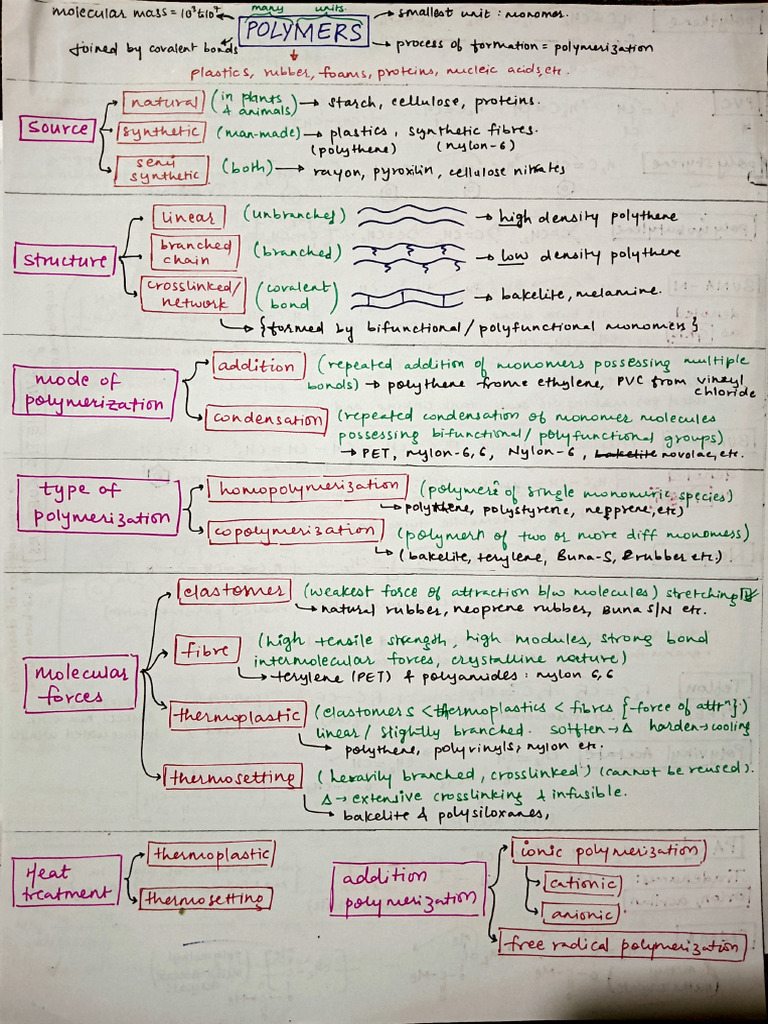 molecular mass = 10³ to 10⁷
many units
POLYMERS
smallest unit : monomer.
joined by covalent bonds
process of formation = polymerization
plastics, rubber, foams, proteins, nucleic acids, etc.
Source
natural (in plants & animals) → starch, cellulose, proteins.
synthetic (man-made) → plastics, synthetic fibres.
(polythene) (nylon-6)
semi synthetic (both) → rayon, pyroxilin, cellulose nitrates
structure
linear (unbranched) → high density polythene
branched chain (branched) → low density polythene
crosslinked/ network (covalent bond) → bakelite, melamine.
{formed by bifunctional/polyfunctional monomers}
mode of polymerization
addition (repeated addition of monomers possessing multiple
bonds) → polythene frome ethylene, PVC from vineyl chloride
condensation (repeated condensation of monomer molecules
possessing bifunctional/polyfunctional groups)
→ PET, nylon-6,6, Nylon-6, bakelite novolac, etc.
type of polymerization
homopolymerization (polymer of single monomeric species)
polythene, polystyrene, neoprene, etc)
copolymerization (polymern of two or more diff monomess)
(bakelite, terylene, Buna-S, rubber etc.)
molecular forces
elastomer (weakest force of attraction b/w molecules) stretching
natural rubber, neoprene rubber, Buna S/N etc.
fibre (high tensile strength, high modules, strong bond
intermolecular forces, crystalline nature)
terylene (PET) & polyamides : nylon 6,6
thermoplastic (elastomers < thermoplastics < fibres {-force of attrⁿ})
linear/slightly branched. soften → Δ harden → cooling
polythene, polyvinyls, nylon etc.
thermosetting (heavily branched, crosslinked) (cannot be reused).
Δ → extensive crosslinking & infusible.
bakelite & polysiloxanes,
Heat treatment
thermoplastic
thermosetting
addition polymerization
ionic polymerization
cationic
anionic
free radical polymerization